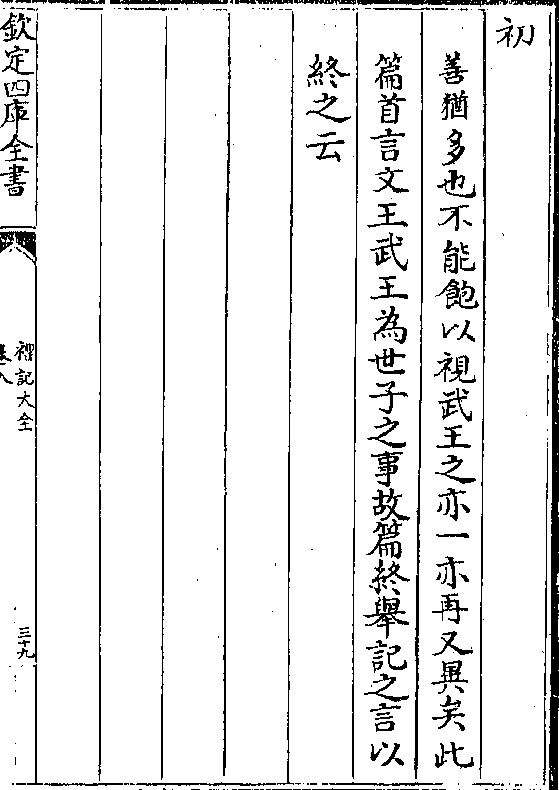 初
善猶多也不能飽以視武王之亦一亦再又異矣此
篇首言文王武王為世子之事故篇終舉記之言以
終之云
欽定四庫全書
禮記大全
卷八
三十九